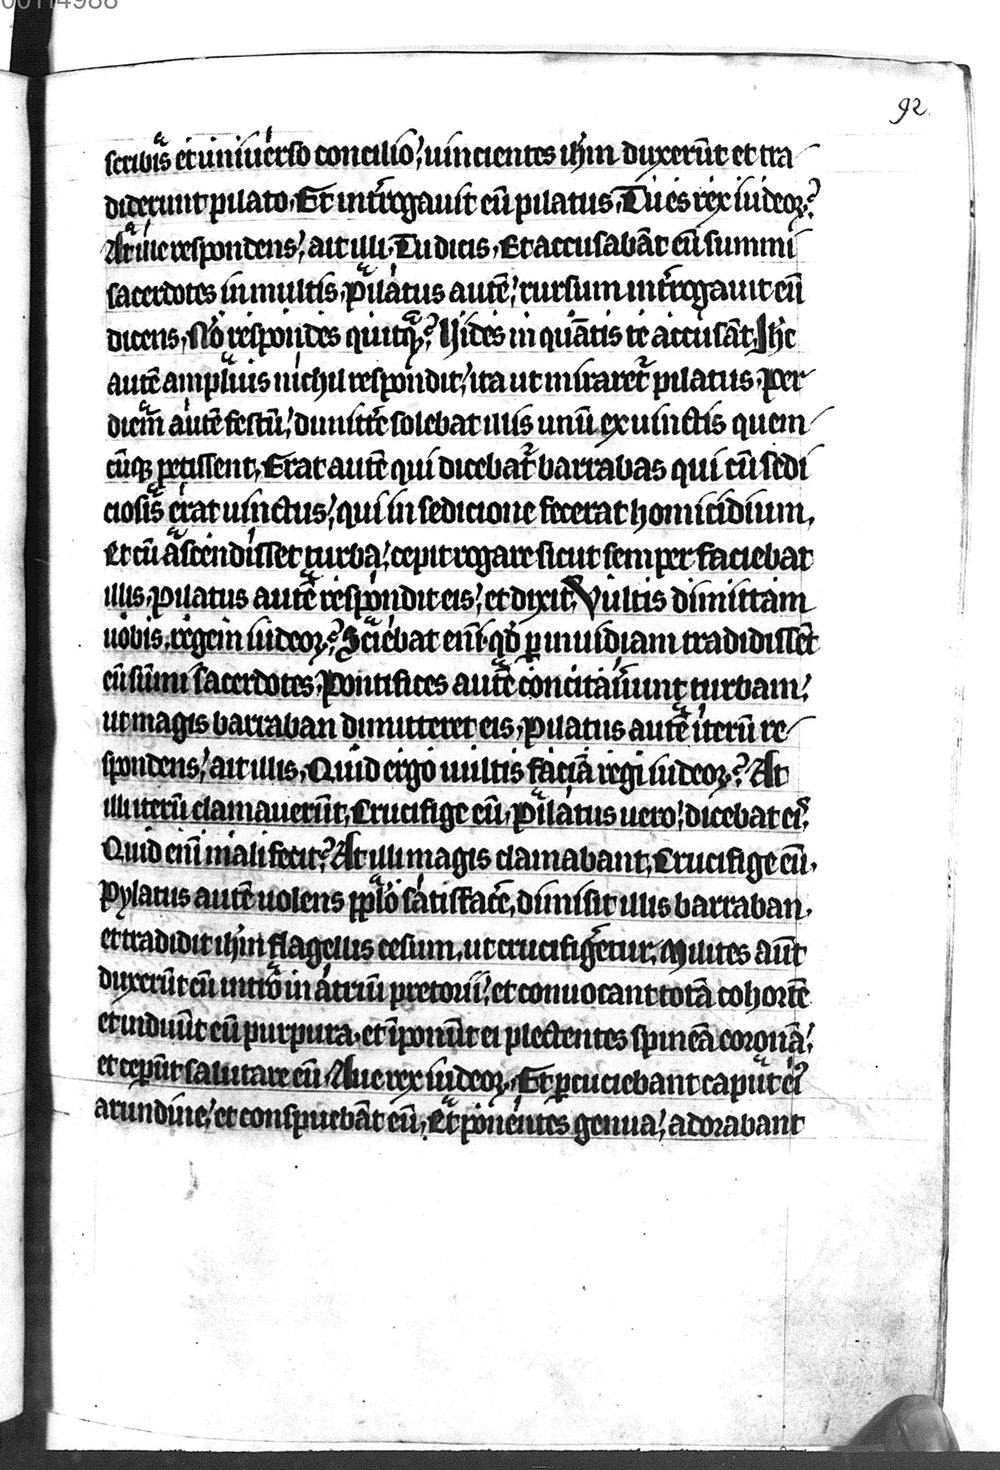 00114988
92
scribis et uniuerso concilio, uincientes ihm̄ duxerūt et tra-
diderunt pilato. Et introgauit eū pilatus, Tu es rex iudeoꝝ?
At ille respondens, ait illi. Tu dicis. Et accusabāt eū summi
sacerdotes in multis. Pilatus autē, rursum introgauit eū
dicens, Nō respondes quicqꝫ? Uides in quātis te accusāt. Ihc
autē amplius nichil respondit, ita ut miraret᷑ pilatus. Per
diem autē festū, dimittē solebat illis unū ex uinctis quem-
cūqꝫ petissent. Erat autē qui dicebat᷑ barrabas qui cū sedi
ciosis erat uinctus, qui in sedicione fecerat homicidium.
Et cū ascendisset turba, cepit rogare sicut semper faciebat
illis. Pilatus autē respondit eis, et dixit. Uultis dimittam
uobis regem iudeoꝝ? Sciebat enī qd̄ ꝑ inuidiam tradidissēt
eū sūmi sacerdotes. Pontifices autē concitauer̄unt turbam,
ut magis barraban dimitteret eis. Pilatus autē iterū re-
spondens, ait illis. Quid ergo uultis faciā regi iudeoꝝ? At
illi iterū clamauerūt, Crucifige eū. Pilatus uero, dicebat eis.
Quid enī mali fecit? At illi magis clamabant, Crucifige eū.
Pylatus autē uolens pplō satisfacē, dimisit illis barraban.
et tradidit ihm̄ flagellis cesum, ut crucifigēetur. Milites aūt
duxerūt eū intro in atriū pretorii, et conuocant totā cohortē
et induūt eū purpura. et īponūt ei plectentes spineā coronā,
et ceperūt salutare eū Aue rex iudeoꝝ. Et ꝑcuciebant caput ei᷒
arundine, et conspuebāt eū. Et ponentes genua, adorabant